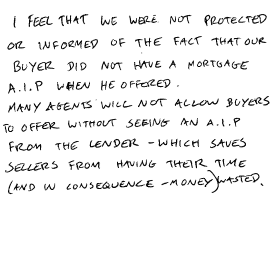 I FEEL THAT WE WERE NOT PROTECTED
OR INFORMED OF THE FACT THAT OUR
BUYER DID NOT HAVE A MORTGAGE
A.I.P WHEN HE OFFERED.
MANY AGENTS WILL NOT ALLOW BUYERS
TO OFFER WITHOUT SEEING AN A.I.P
FROM THE LENDER - WHICH SAVES
SELLERS FROM HAVING THEIR TIME
(AND IN CONSEQUENCE - MONEY) WASTED.